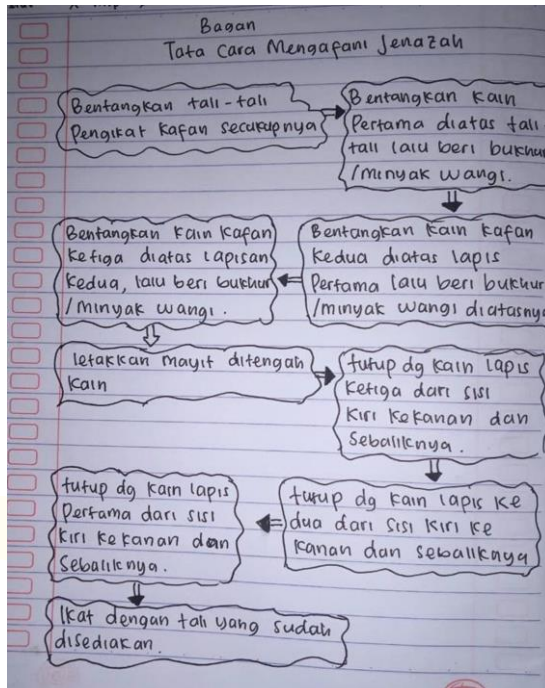 Bagan
Tata Cara Mengafani Jenazah
Bentangkan tali-tali
Pengikat kafan secukupnya
Bentangkan Kain
Pertama diatas tali-
tali lalu beri bukhur
/minyak wangi.
Bentangkan kain kafan
Kedua diatas lapis
Pertama lalu beri bukhur
/minyak wangi diatasnya
Bentangkan Kain Kafan
Ketiga diatas lapisan
Kedua, lalu beri bukhur
/minyak wangi.
letakkan mayit ditengah
kain
tutup dg kain lapis
Ketiga dari sisi
Kiri Kekanan dan
Sebaliknya.
tutup dg kain lapis ke
dua dari sisi kiri ke
Kanan dan sebaliknya
tutup dg kain lapis
Pertama dari sisi
kiri kekanan dan
Sebaliknya.
Ikat dengan tali yang sudah
disediakan.